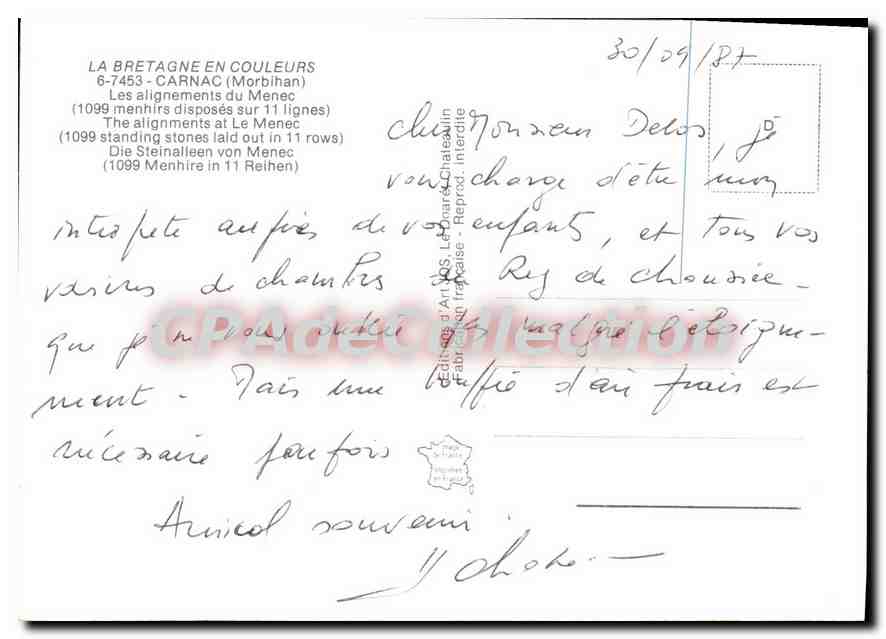 LA BRETAGNE EN COULEURS
6-7453 - CARNAC (Morbihan)
Les alignements du Menec
(1099 menhirs disposés sur 11 lignes)
The alignments at Le Menec
(1099 standing stones laid out in 11 rows)
Die Steinalleen von Menec
(1099 Menhire in 11 Reihen)
30/09/87
D
Cher Monsieur Delos, je
vous charge d'être mon
interprete auprès de vos enfants, et tous vos
voisins de chambres du Rez de chaussée -
que je ne vous oublie pas malgré l'éloigne-
ment - Mais une bouffée d'air frais est
nécessaire parfois
Amical souvenir.
Editions d'Art JOS, Le Doaré, Chateaulin
Fabrication française - Reprod. interdite
CPAdeCollection